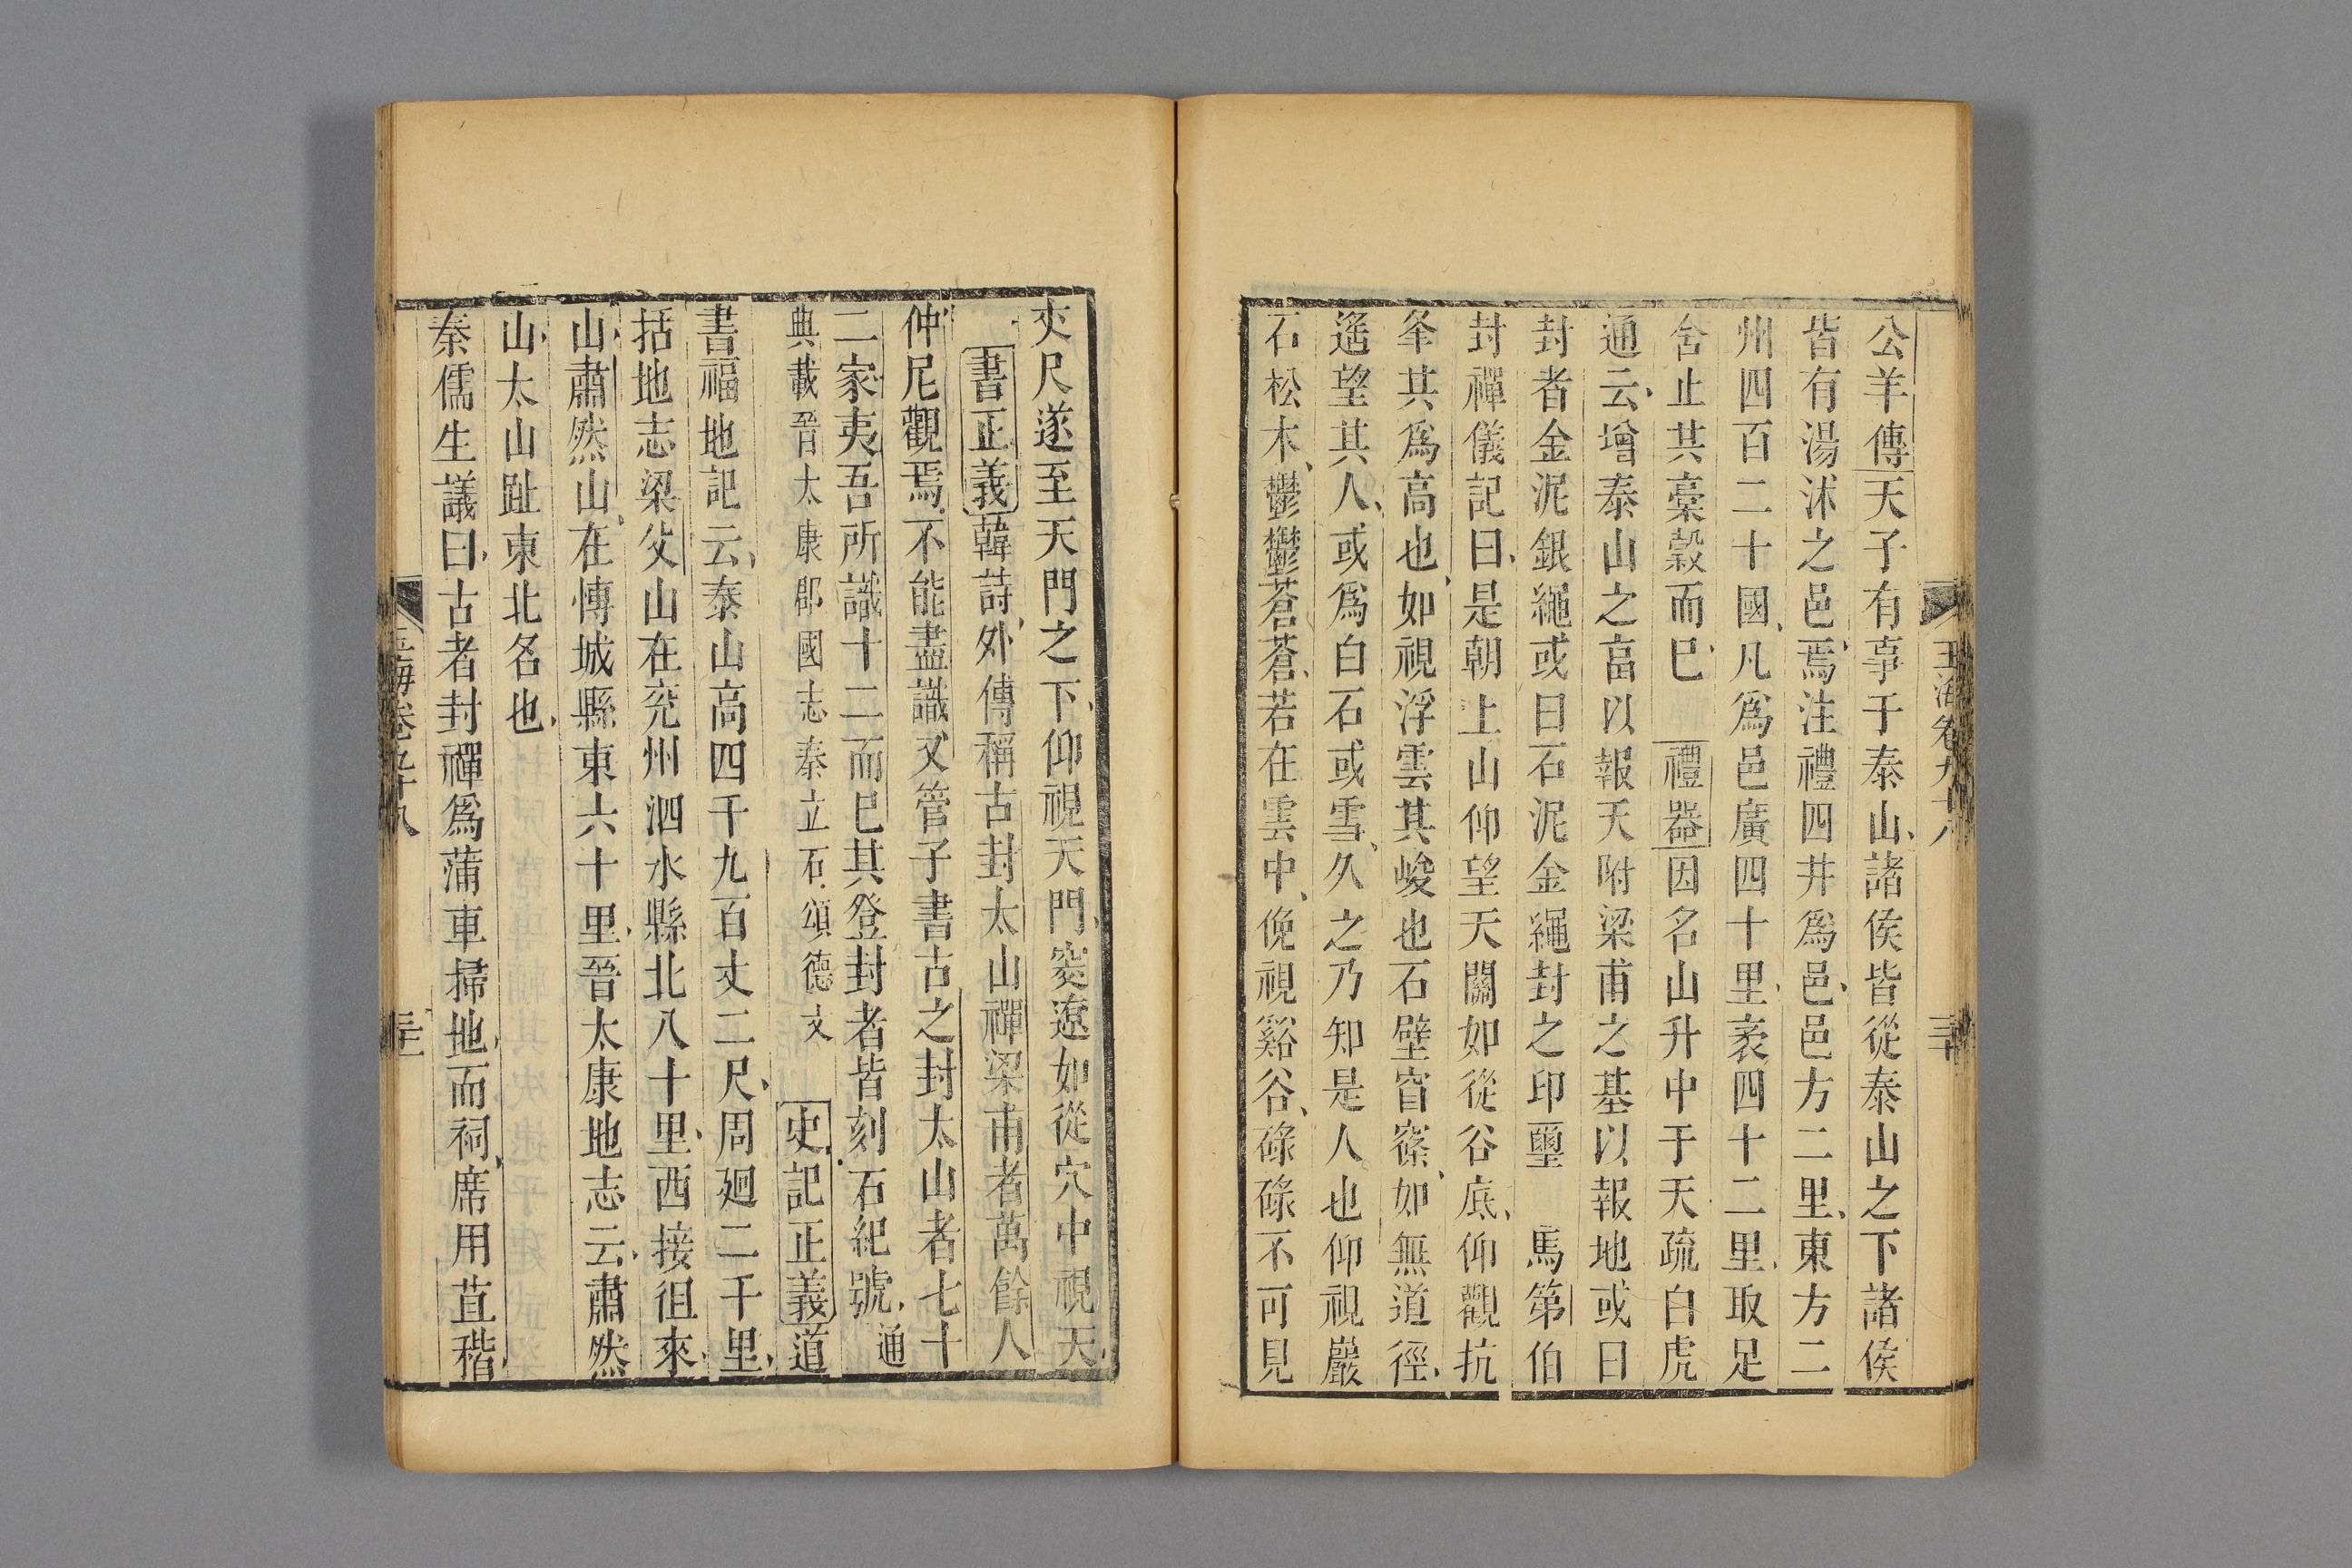 玉海卷九十八 三十
公羊傳天子有事于泰山諸侯皆從泰山之下諸侯
皆有湯沭之邑焉注禮四井爲邑邑方二里東方二
州四百二十國凡爲邑廣四十里袤四十二里取足
舍止共槀糓而巳 禮器因名山升中于天疏白虎
通云增泰山之高以報天附梁甫之基以報地或曰
封者金泥銀繩或曰石泥金繩封之印璽 馬第伯
封禪儀記曰是朝上山仰望天關如從谷底仰觀抗
峯其爲高也如視浮雲其峻也石壁窅窱如無道徑
遙望其人或爲白石或雪久之乃知是人也仰視巖
石松木鬱鬱蒼蒼若在雲中俛視谿谷碌碌不可見
丈尺遂至天門之下仰視天門窔遼如從穴中視天
書正義韓詩外傳稱古封太山禪梁甫者萬餘人
仲尼觀焉不能盡識又管子書古之封太山者七十
二家夷吾所識十二而巳其登封者皆刻石紀號通
典載晉太康郡國志秦立石頌德文 史記正義道
書福地記云泰山高四千九百丈二尺周廻二千里
括地志梁父山在兖州泗水縣北八十里西接徂來
山肅然山在慱城縣東六十里晉太康地志云肅然
山太山趾東北名也
秦儒生議曰古者封禪爲蒲車掃地而祠席用苴稭
玉海卷九十八